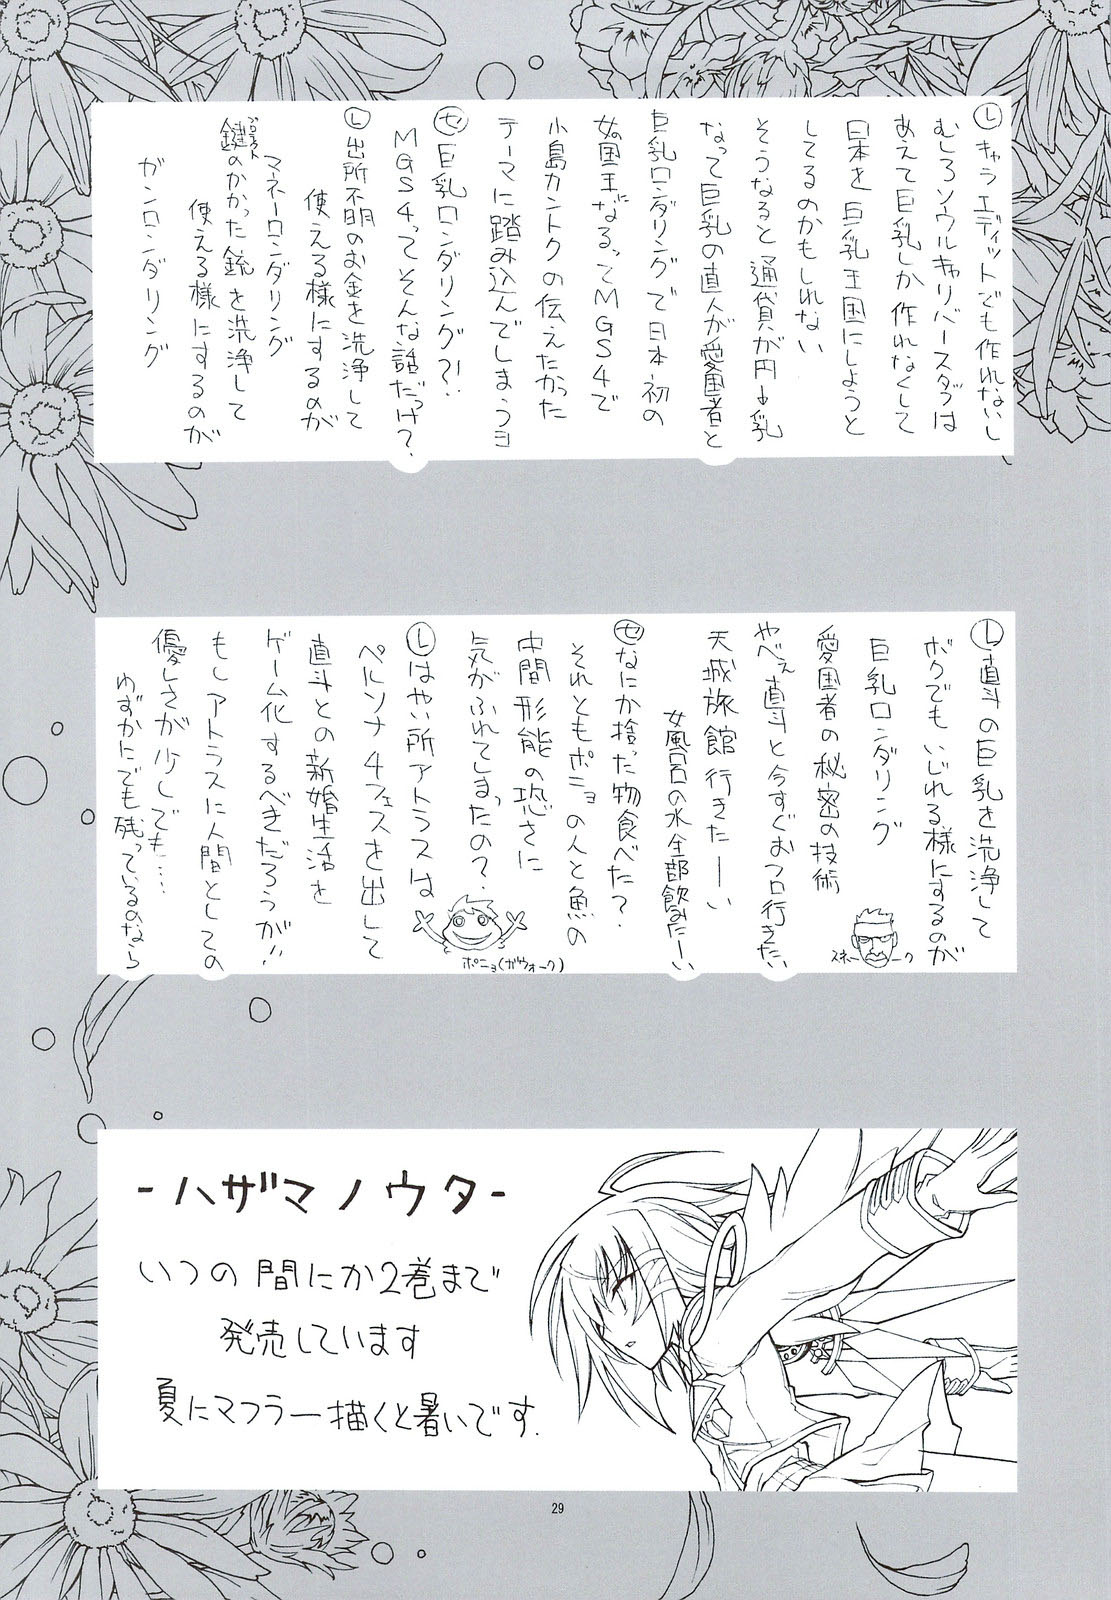 Ⓛキャラエディットでも作れないし
むしろソウルキャリバースタッフは
あえて巨乳しか作れなくして
日本を巨乳王国にしようと
してるのかもしれない
そうなると通貨が円→乳
なって巨乳の直人が愛国者と
巨乳ロンダリングで日本初の
女国王になるってMGS4で
小島カントクの伝えたかった
テーマに踏み込んでしまうヨ
㋝巨乳ロンダリング?!
MGS4ってそんな話だっけ?
Ⓛ出所不明のお金を洗浄して
使える様にするのが
マネーロンダリング
鍵のかかった銃を洗浄して
使える様にするのが
ガンロンダリング
Ⓛ直斗の巨乳を洗浄して
ボクでもいじれる様にするのが
巨乳ロンダリング
愛国者の秘密の技術
やべぇ直斗と今すぐおフロ行きたい
天城旅館行きたーーい
女風呂の水全部飲みたーい
スネーーク
㋝なにか捨った物食べた?
それともポニョの人と魚の
中間形態の恐さに
気がふれてしまったの?
ポニョ(ガウォーク)
Ⓛはやい所アトラスは
ペルソナ4フェスを出して
直斗との新婚生活を
ゲーム化するべきだろうが!!
もしアトラスに人間としての
優しさが少しでも・・・・
わずかにでも残っているのなら
-ハザマノウタ-
いつの間にか2巻まで
発売しています
夏にマフラー描くと暑いです.
29